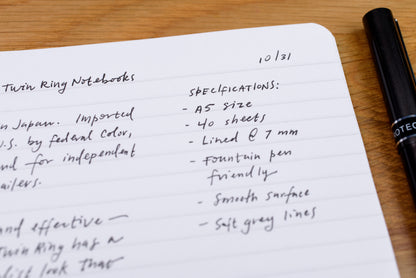 10/31
Twin Ring Notebooks
n Japan. Imported
U.S. by federal color,
nd for independent
ailers.
and effective —
Twin Ring has a
list look that
SPECIFICATIONS:
- A5 size
- 40 sheets
- Lined @ 7 mm
- Fountain pen
friendly
- Smooth surface
- Soft gray lines
NOTEC